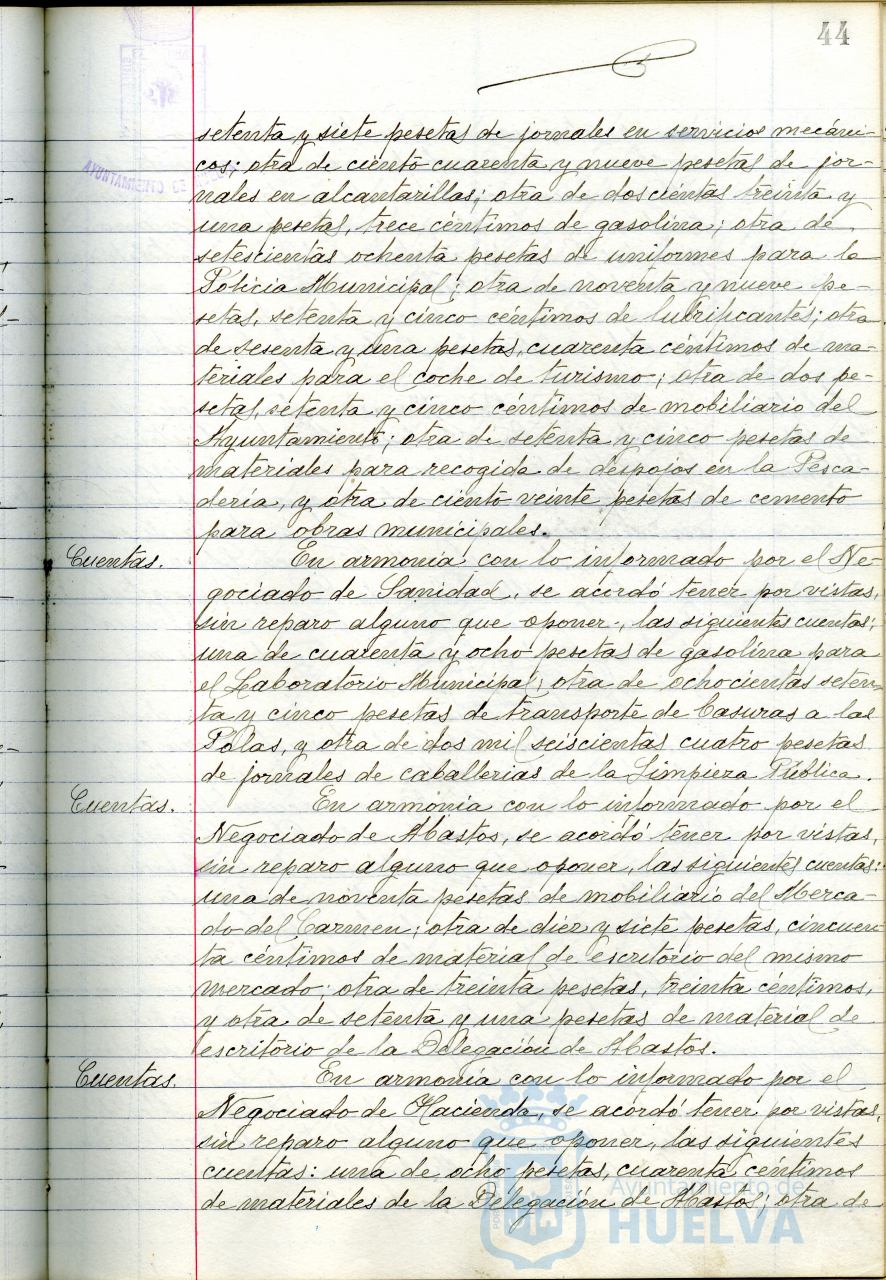 44
AYUNTAMIENTO DE
setenta y siete pesetas de jornales en servicios mecáni-
cos; otra de ciento cuarenta y nueve pesetas de jor-
nales en alcantarillas; otra de doscientas treinta y
una pesetas, trece céntimos de gasolina; otra de
setescientas ochenta pesetas de uniformes para la
Policia Municipal; otra de noventa y nueve pe-
setas, setenta y cinco céntimos de lubrificantes; otra
de sesenta y una pesetas, cuarenta céntimos de ma-
teriales para el coche de turismo; otra de dos pe-
setas, setenta y cinco céntimos de mobiliario del
Ayuntamiento; otra de setenta y cinco pesetas de
materiales para recogida de despojos en la Pesca-
dería, y otra de ciento veinte pesetas de cemento
para obras municipales.
Cuentas. En armonía con lo informado por el Ne-
gociado de Sanidad, se acordó tener por vistas,
sin reparo alguno que oponer, las siguientes cuentas;
una de cuarenta y ocho pesetas de gasolina para
el Laboratorio Municipal; otra de ochocientas seten-
ta y cinco pesetas de transporte de basuras a las
Polas, y otra de dos mil seiscientas cuatro pesetas
de jornales de caballerias de la Limpieza Pública.
Cuentas. En armonía con lo informado por el
Negociado de Abastos, se acordó tener por vistas,
sin reparo alguno que oponer, las siguientes cuentas:
una de noventa pesetas de mobiliario del Merca-
do del Carmen; otra de diez y siete pesetas, cincuen-
ta céntimos de material de escritorio del mismo
mercado; otra de treinta pesetas, treinta céntimos,
y otra de setenta y una pesetas de material de
escritorio de la Delegación de Abastos.
Cuentas. En armonía con lo informado por el
Negociado de Hacienda, se acordó tener por vistas,
sin reparo alguno que oponer, las siguientes
cuentas: una de ocho pesetas, cuarenta céntimos
de materiales de la Delegación de Abastos; otra de
Ayuntamiento de
HUELVA